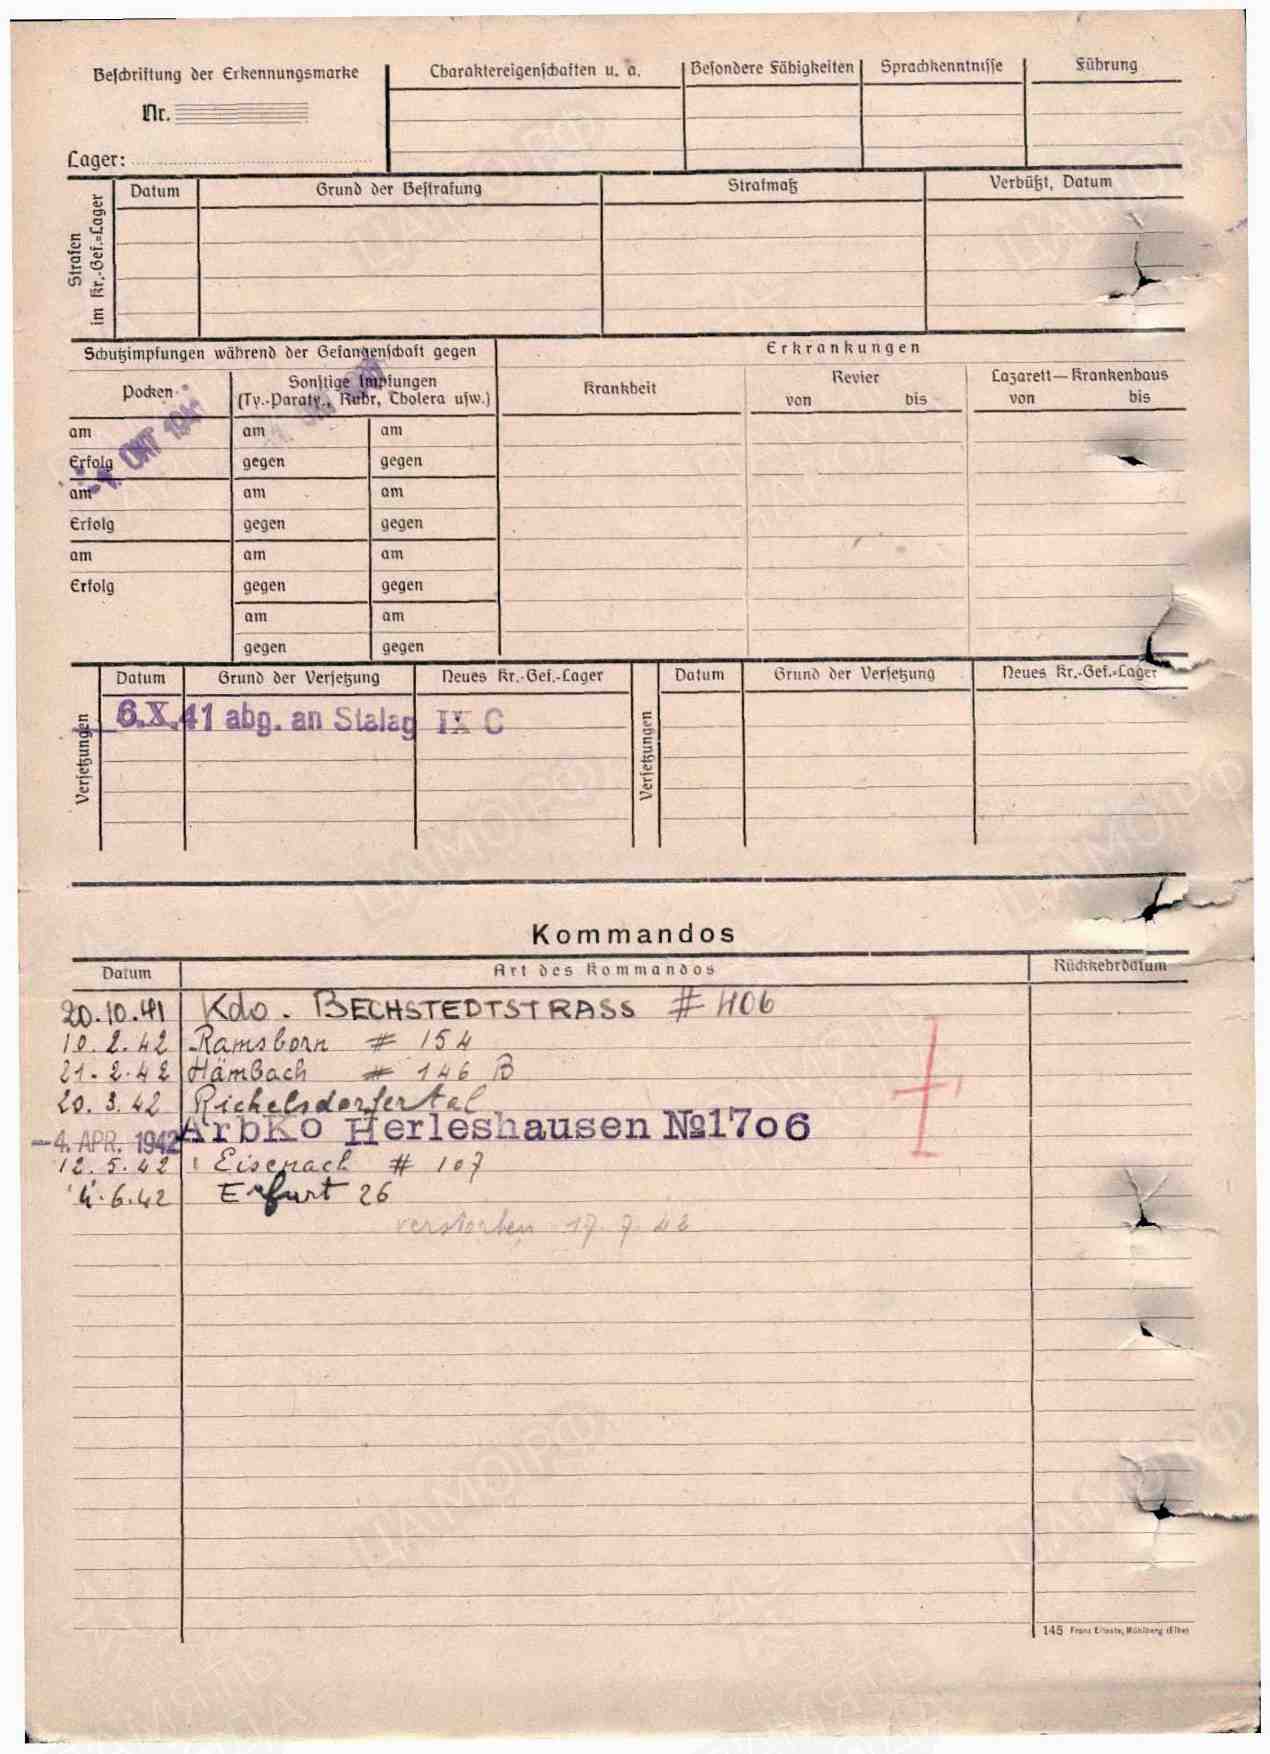 Beschriftung der Erkennungsmarke
Nr.
Lager:
Charaktereigenschaften u. a. Besondere Fähigkeiten Sprachkenntnisse Führung
Strafen im Kr.-Gef.-Lager
Datum Grund der Bestrafung Strafmaß Verbüßt, Datum
Schutzimpfungen während der Gefangenschaft gegen
Erkrankungen
Pocken
Sonstige Impfungen
(Ty.-Paraty., Ruhr, Cholera usw.)
Krankheit
Revier
von bis
Lazarett—Krankenhaus
von bis
am am am
Erfolg gegen gegen
OKT 1941
am am am
Erfolg gegen gegen
am am am
Erfolg gegen gegen
am am
gegen gegen
Versetzungen
Datum Grund der Versetzung Neues Kr.-Gef.-Lager
6.X.41 abg. an Stalag IX C
Versetzungen
Datum Grund der Versetzung Neues Kr.-Gef.-Lager
Kommandos
Datum Art des Kommandos Rückkehrdatum
20.10.41 Kdo. BECHSTEDTSTRASS # 406
10.2.42 Ramsborn # 154
21.2.42 Hämbach # 146 B
20.3.42 Richelsdorfertal
-4. APR. 1942 ArbKo Herleshausen №1706
12.5.42 Eisenach # 107
4.6.42 Erfurt 26
verstorben 17.7.42
145 Franz Mühlberg (Elbe)
ЦАМО РФ